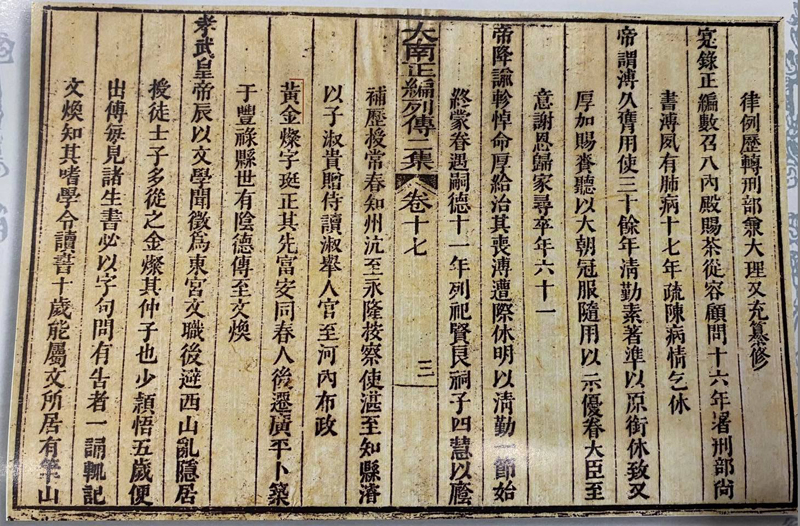 律例歷轉刑部兼大理又充纂修
寔錄正編數召入內殿賜茶從容顧問十六年署刑部尙
書溥夙有肺病十七年疏陳病情乞休
帝謂溥久膺用使三十餘年清勤素著準以原銜休致又
厚加賜賚聽以大朝冠服隨用以示優眷大臣至
意謝恩歸家尋卒年六十一
帝降諭軫悼命厚給治其喪溥遭際休明以清勤一節始
終蒙眷遇嗣德十一年列祀賢良祠子四慧以廕
大南正編列傳二集
卷十七
三
補歷授常春知州沆至永隆按察使湛至知縣濬
以子淑貴贈侍讀淑舉人官至河內布政
黃金燦字珽正其先富安同春人後遷廣平卜築
于豐祿縣世有陰德傳至文煥
孝武皇帝辰以文學聞徵爲東宮文職後避西山亂隱居
授徒士子多從之金燦其仲子也少穎悟五歲便
出傳每見諸生書必以字句問有告者一誦輒記
文煥知其嗜學令讀書十歲能屬文所居有筆山